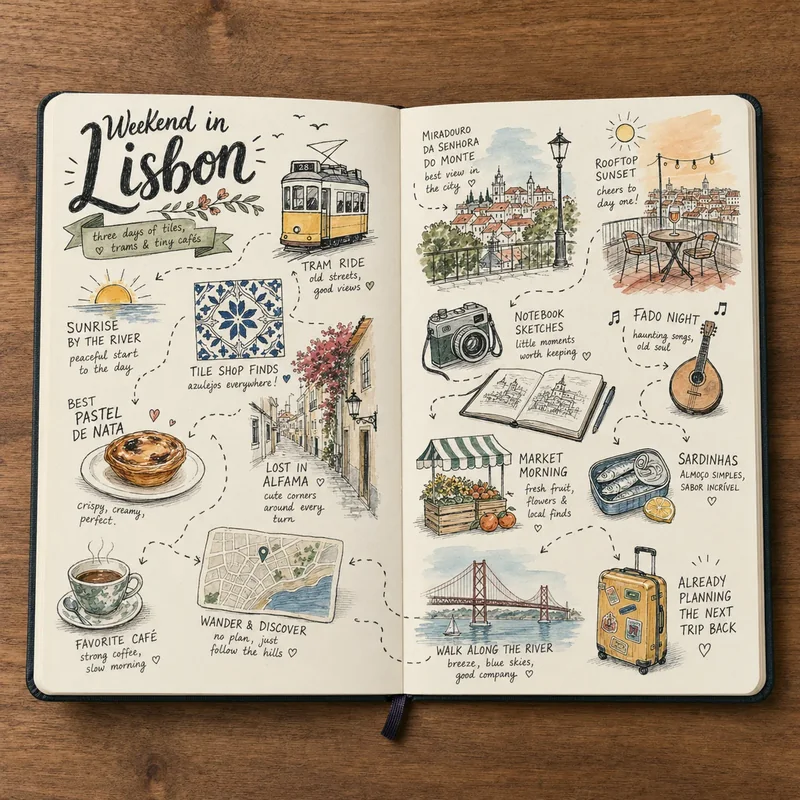 Weekend in
Lisbon
three days of tiles,
♡ trams & tiny cafés
28
TRAM RIDE
old streets,
good views ♡
SUNRISE
BY THE RIVER
peaceful start
to the day
TILE SHOP FINDS
azulejos everywhere! ♥
BEST
PASTEL
DE NATA
crispy, creamy,
perfect.
LOST IN
ALFAMA ♡
cute corners
around every
turn
FAVORITE CAFÉ
strong coffee,
slow morning ♡
WANDER & DISCOVER
no plan, just
follow the hills ♡
MIRADOURO
DA SENHORA
DO MONTE
best view in
the city ♡
ROOFTOP
SUNSET
cheers to
day one!
NOTEBOOK
SKETCHES
little moments
worth keeping ♡
FADO NIGHT
haunting songs,
old soul
MARKET
MORNING
fresh fruit,
flowers &
local finds
♡
SARDINHAS
ALMOÇO SIMPLES,
SABOR INCRÍVEL
♡
WALK ALONG THE RIVER
breeze, blue skies,
good company ♡
ALREADY
PLANNING
THE NEXT
TRIP BACK
♡